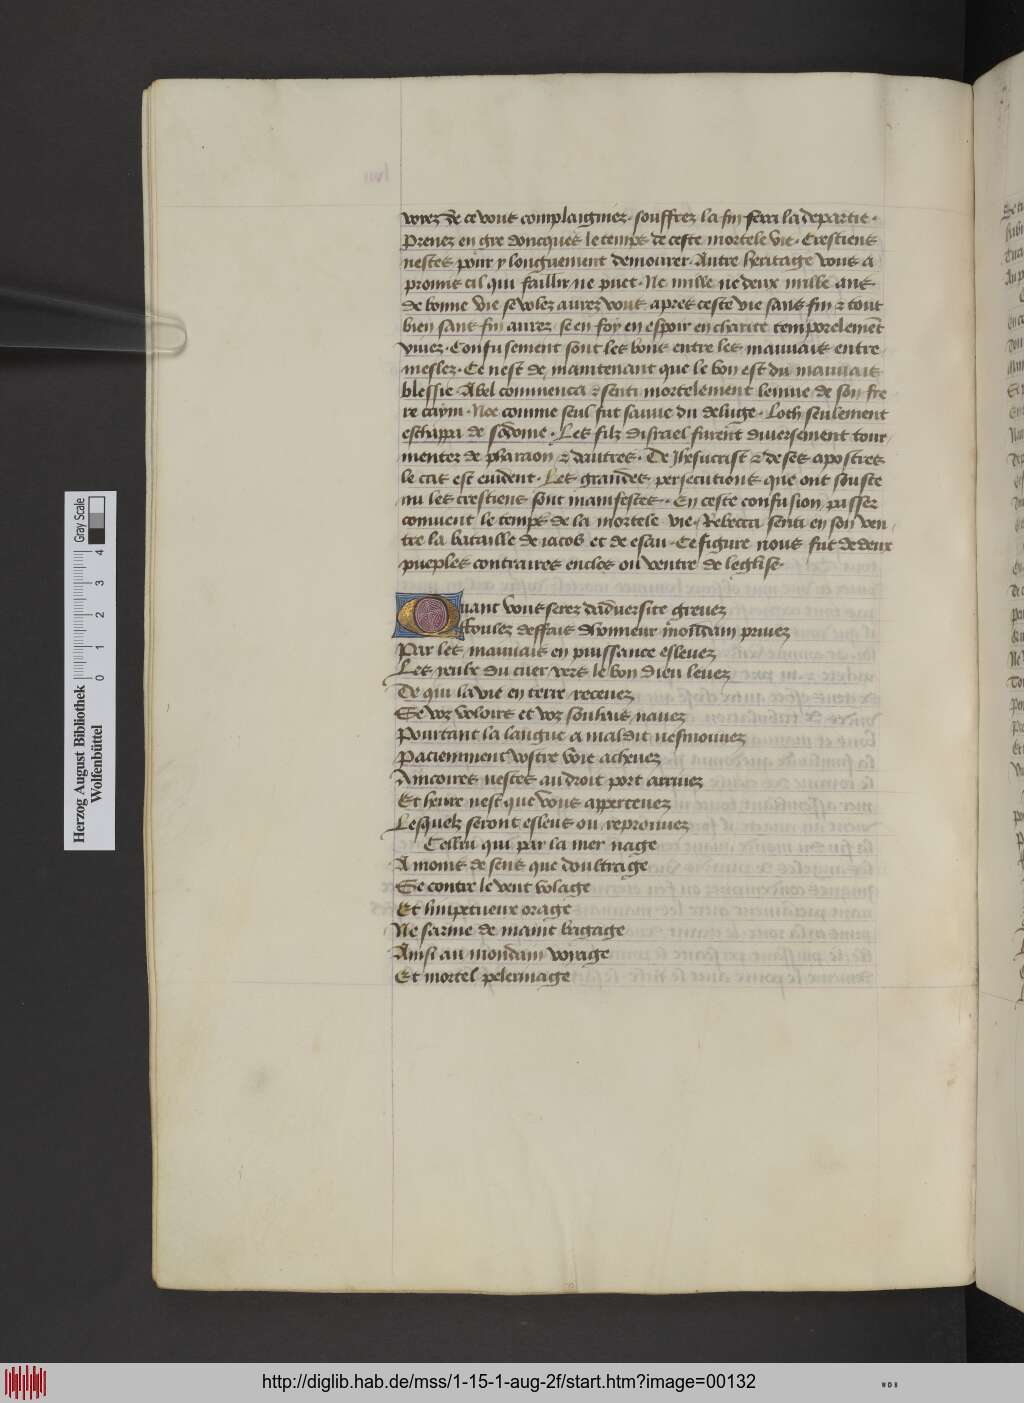 voiez de ce vous complaigniez. souffrez la fin fera la departie.
Prenez en gre doncques le temps de ceste mortele vie. Crestiens
nestes pour y longuement demourer. Autre heritage vous a
promis cil qui faillir ne puet. Ne mille ne deux mille ans
de bonne vie se volez aurez vous apres ceste vie sans fin ⁊ tout
bien sans fin aurez se en foy en espoir en charite temporelemēt
vivez. Confusement sont les bons entre les mauvais entre
meslez. Ce nest de maintenant que le bon est du mauvais
blessie. Abel commenca ⁊ senti mortelement lenvie de son fre
re caym. Noe comme seul fut sauve du deluge. Loth seulement
eschappa de sodome. Les filz disrael furent diversement tour
mentez de pharaon ⁊ dautres. De Jhesucrist ⁊ de ses apostres
le cas est evident. Les grandes persecutions que ont souste
nu les crestiens sont manifestes. En ceste confusion passer
convient le temps de la mortele vie. Rebecca senti en son ven
tre la bataille de iacob et de esau. Ce figure nous fut de deux
pueples contraires enclos ou ventre de leglise.
Quant vous serez dadversite grevez
Foulez deffais dhonneur mondain privez
Par les mauvais en puissance eslevez
Les yeulx du cuer vers le bon dieu levez
De qui la vie en terre recevez
Se voz voloirs et voz souhais navez
Pourtant la langue a maldit nesmouvez
Paciemment vostre voie achevez
Aincoires nestes au droit port arrivez
Et heure nest que vous appercevez
Lesquelz seront esleus ou reprouvez
Cellui qui par la mer nage
A moins de sens que doultrage
Se contre le vent volage
Et limpetueux orage
Ne sarme de maint bagage
Ainsi au mondain voyage
Et mortel pelerinage
Herzog August Bibliothek
Wolfenbüttel
0 1 2 3 4
Gray Scale
http://diglib.hab.de/mss/1-15-1-aug-2f/start.htm?image=00132